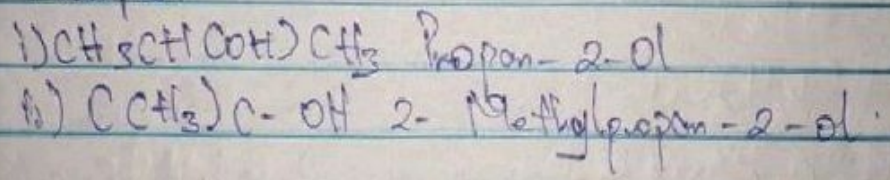 i) CH3CH(OH)CH3 Propan-2-ol
ii) C(CH3)C-OH 2-Methylpropan-2-ol.